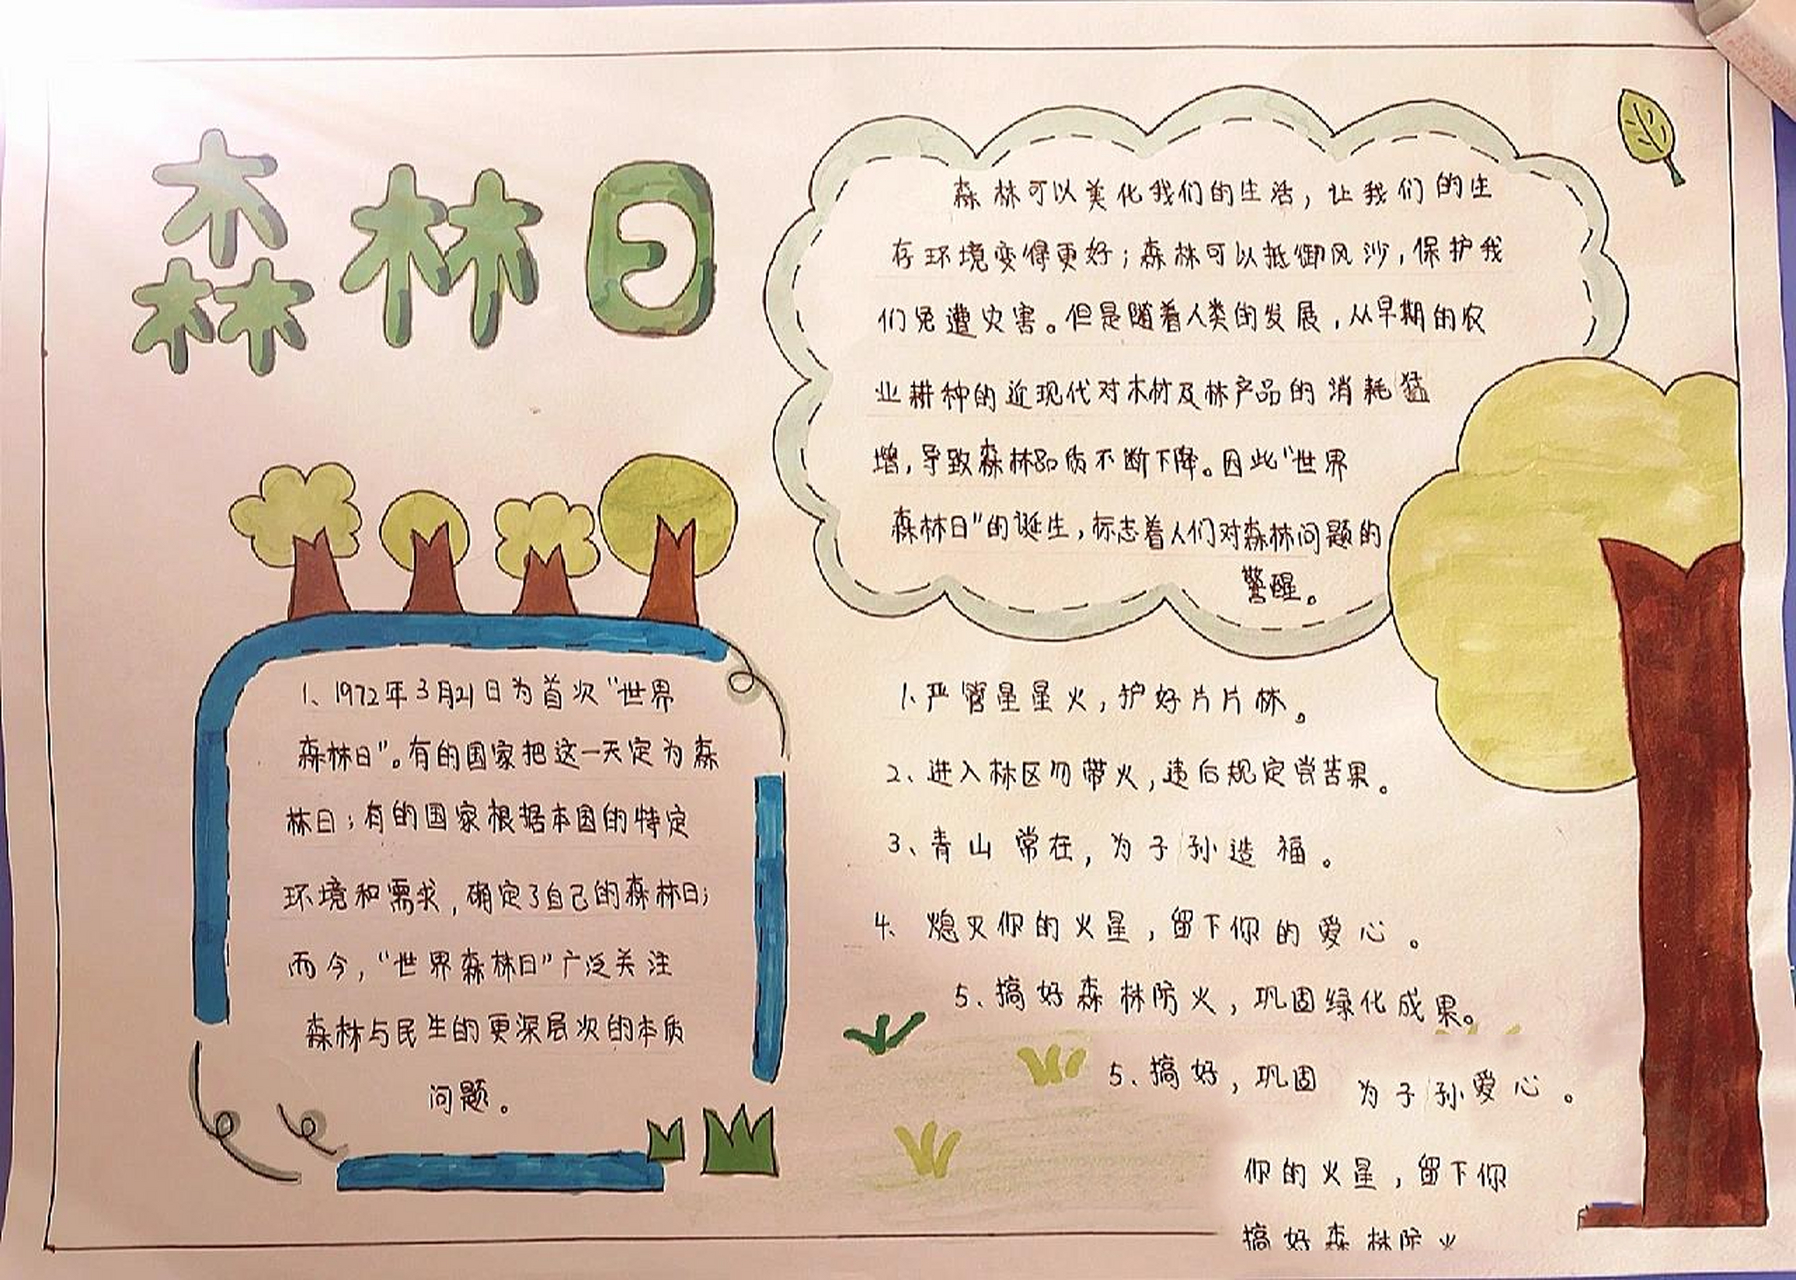 森林日
森林可以美化我们的生活，让我们的生
存环境变得更好；森林可以抵御风沙，保护我
们免遭灾害。但是随着人类的发展，从早期的农
业耕种的近现代对木材及林产品的消耗猛
增，导致森林品质不断下降。因此“世界
森林日”的诞生，标志着人们对森林问题的
警醒。
1、1972年3月21日为首次“世界
森林日”。有的国家把这一天定为森
林日；有的国家根据本国的特定
环境和需求，确定了自己的森林日；
而今，“世界森林日”广泛关注
森林与民生的更深层次的本质
问题。
1、严管星星火，护好片片林。
2、进入林区勿带火，违后规定尝苦果。
3、青山常在，为子孙造福。
4、熄灭你的火星，留下你的爱心。
5、搞好森林防火，巩固绿化成果。
5、搞好，巩固 为子孙爱心。
你的火星，留下你
搞好森林防火